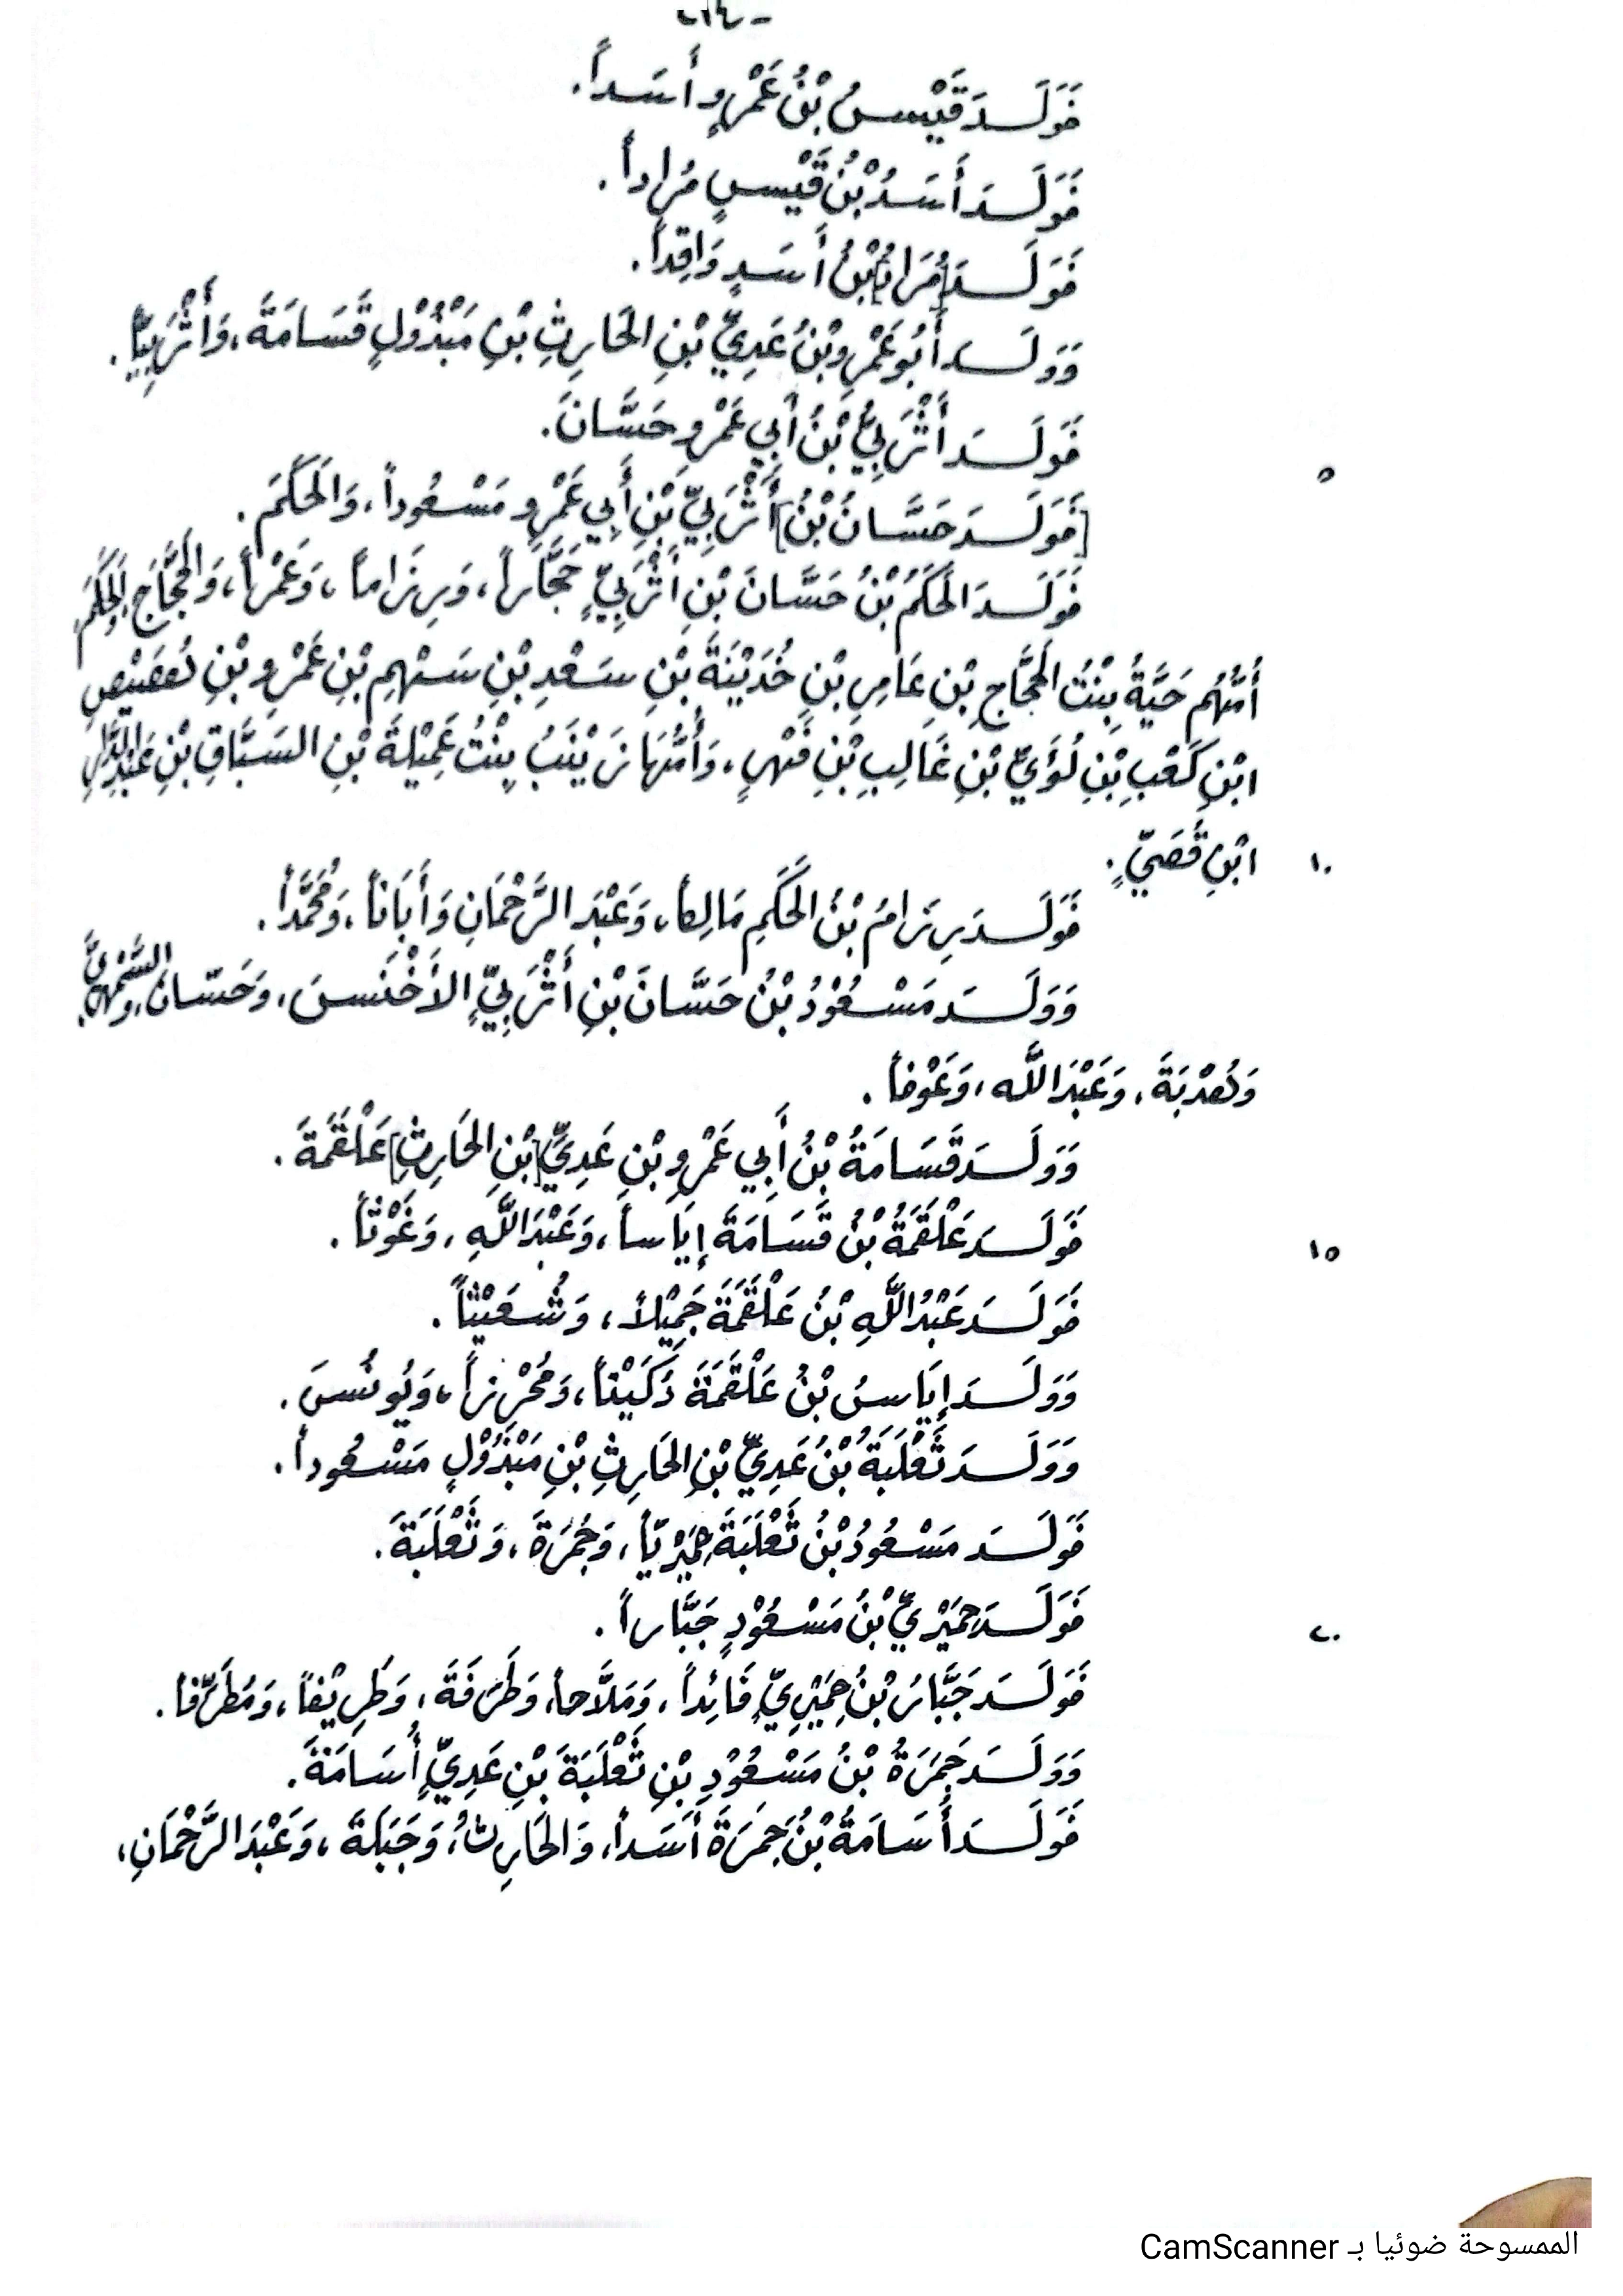 فَوَلَـدَ قَيْسُ بْنُ عَمْرٍو أَسَداً.
فَوَلَـدَ أَسَدُ بْنُ قَيْسٍ مُراداً.
فَوَلَـدَ [مُرَادُ] بْنُ أَسَدٍ وَاقِداً.
وَوَلَـدَ أَبُو عَمْرِو بْنُ عَدِيِّ بْنِ الحَارِثِ بْنِ مَبْذُوْلٍ قَسَامَةَ، وَأَثْرَبِيّاً.
فَوَلَـدَ أَثْرَبِيُّ بْنُ أَبِي عَمْرٍو حَسَّانَ.
٥
[فَوَلَـدَ حَسَّانُ بْنُ] أَثْرَبِيِّ بْنِ أَبِي عَمْرٍو مَسْعُوداً، وَالحَكَمَ.
فَوَلَـدَ الحَكَمُ بْنُ حَسَّانَ بْنِ أَثْرَبِيٍّ حَجَّاراً، وَرِزَاماً، وَعَمْراً، وَالحَجَّاجَ، وَالحَكَمَ،
أُمُّهُم حَيَّةُ بِنْتُ الحَجَّاجِ بْنِ عَامِرِ بْنِ حُذَيْفَةَ بْنِ سَعْدِ بْنِ سَهْمِ بْنِ عَمْرِو بْنِ هُصَيْصِ
ابْنِ كَعْبِ بْنِ لُؤَيِّ بْنِ غَالِبِ بْنِ فَهْرٍ، وَأُمُّهَا زَيْنَبُ بِنْتُ عُمَيْلَةَ بْنِ السَبَّاقِ بْنِ عَبْدِ الدَّارِ
ابْنِ قُصَيٍّ.
١٠
فَوَلَـدَ رِزَامُ بْنُ الحَكَمِ مَالِكاً، وَعَبْدَ الرَّحْمَانِ وَأَبَاناً، وَمُحَمَّداً.
وَوَلَـدَ مَسْعُوْدُ بْنُ حَسَّانَ بْنِ أَثْرَبِيٍّ الأَخْنَسَ، وَحَسّانَ، والسَّمْهَرِيَّ،
وَهُدْبَةَ، وَعَبْدَ اللَّه، وَعَوْفاً.
وَوَلَـدَ قَسَامَةُ بْنُ أَبِي عَمْرِو بْنِ عَدِيِّ [بْنِ الحَارِثِ] عَلْقَمَةَ.
فَوَلَـدَ عَلْقَمَةُ بْنُ قَسَامَةَ إِيَاساً، وَعَبْدَ اللَّهِ، وَغَوْثاً.
١٥
فَوَلَـدَ عَبْدُ اللَّهِ بْنُ عَلْقَمَةَ جَمِيْلاً، وَشُعَيْثاً.
وَوَلَـدَ إِيَاسُ بْنُ عَلْقَمَةَ دُكَيْناً، وَمُحْرِزاً، وَيُونُسَ.
وَوَلَـدَ ثَعْلَبَةُ بْنُ عَدِيِّ بْنِ الحَارِثِ بْنِ مَبْذُوْلٍ مَسْعُوداً.
فَوَلَـدَ مَسْعُودُ بْنُ ثَعْلَبَةَ حِمْيَرِيّاً، وَجَمْرَةَ، وَثَعْلَبَةَ.
فَوَلَـدَ حِمْيَرِيُّ بْنُ مَسْعُوْدٍ جَبَّاراً.
٢٠
فَوَلَـدَ جَبَّارُ بْنُ حِمْيَرِيٍّ قَائِداً، وَمَلَّاحاً، وَطَرَفَةَ، وَطَرِيْفاً، وَمُطَرِّفاً.
وَوَلَـدَ جَمْرَةُ بْنُ مَسْعُوْدِ بْنِ ثَعْلَبَةَ بْنِ عَدِيٍّ أُسَامَةَ.
فَوَلَـدَ أُسَامَةُ بْنُ جَمْرَةَ أَسَداً، وَالحَارِثَ، وَجَبَلَةَ، وَعَبْدَ الرَّحْمَانِ،
الممسوحة ضوئيا بـ CamScanner